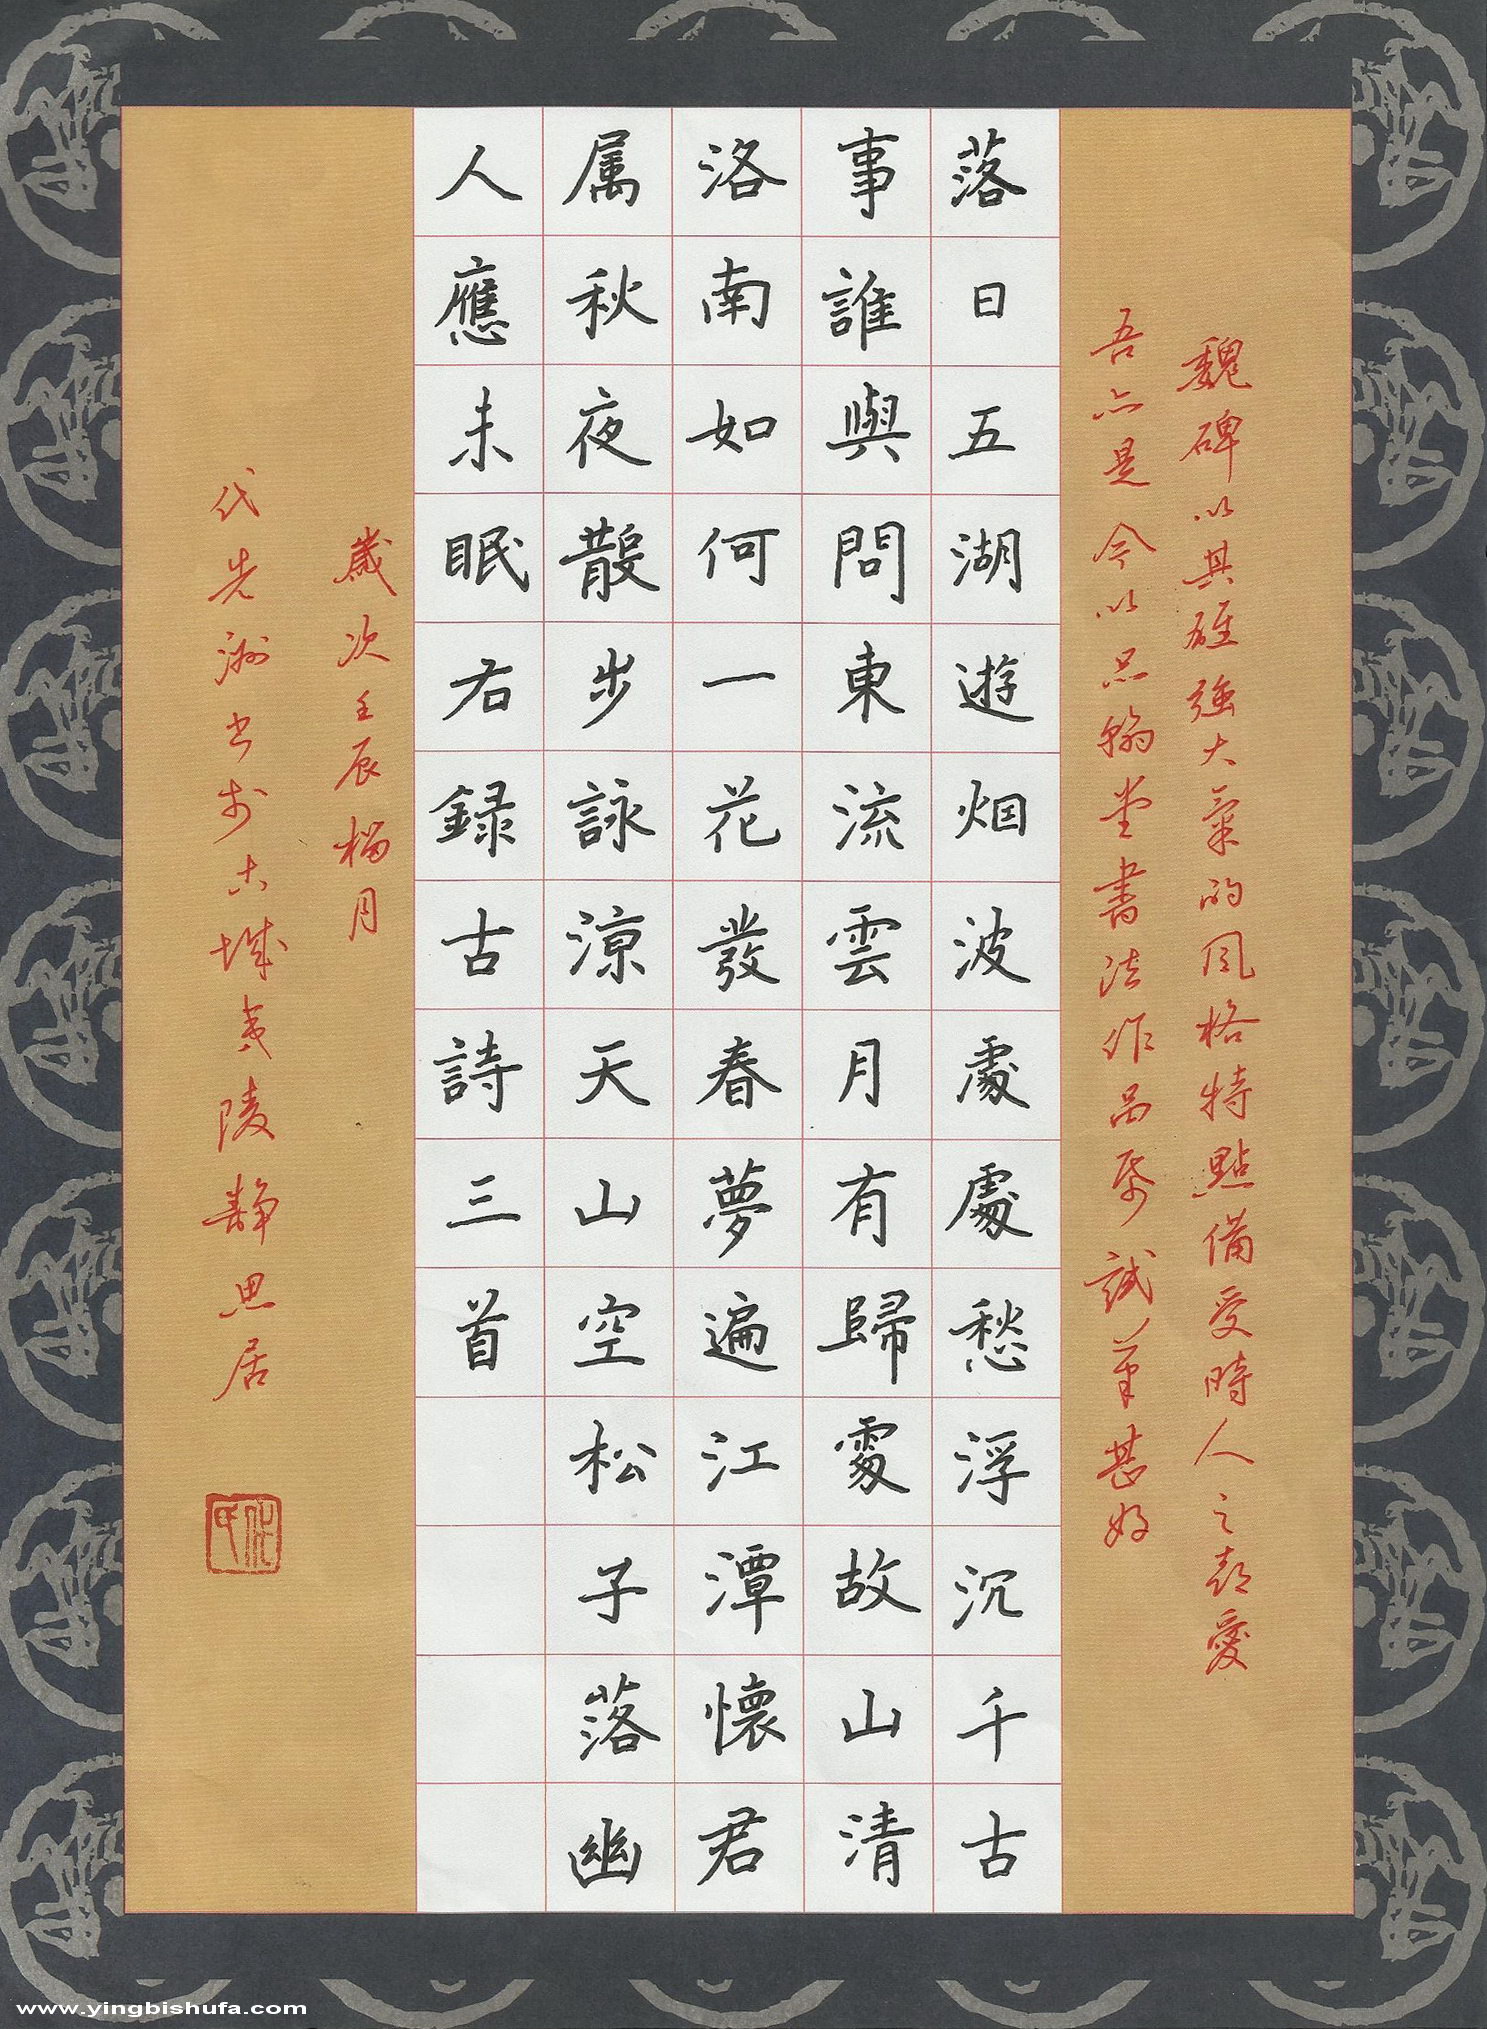 魏碑以其雄强大氣的风格特點備受時人之喜愛
吾亦是今以品翰堂書法作品紙試筆甚好
落日五湖遊烟波處處愁浮沉千古
事誰與問東流雲月有歸處故山清
洛南如何一花發春夢遍江潭懷君
属秋夜散步詠涼天山空松子落幽
人應未眠右録古詩三首
歲次壬辰榴月
代先洲书於古城夷陵靜思居
代氏
www.yingbishufa.com